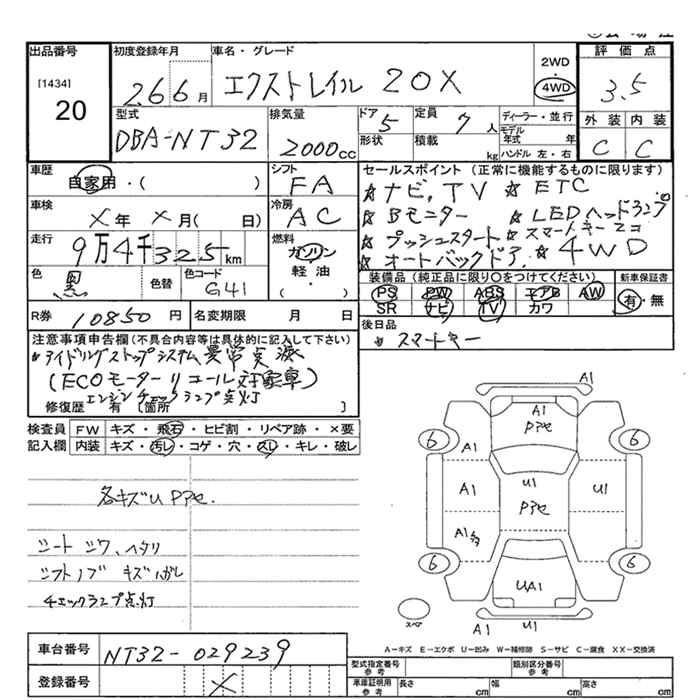 出品番号
[1434]
20
初度登録年月
26 6 月
車名・グレード
エクストレイル 20X
2WD
4WD
評価点
3.5
外装 内装
C C
型式
DBA-NT32
排気量
2000cc
ドア 5
形状
定員 7 人
積載 kg
ディーラー・並行
モデル年式 年
ハンドル 左・右
車歴
自家用・( )
シフト
FA
車検
X年 X月( 日)
冷房
AC
走行
9万4千325km
燃料
ガソリン
軽油
( )
色
黒
色替
色コード
G41
R券 10850 円
名変期限 月 日
セールスポイント(正常に機能するものに限ります)
☆ナビ,TV ☆ETC
☆Bモニター ☆LEDヘッドランプ
☆プッシュスタート ☆スマートキー2コ
☆オートバックドア ☆4WD
装備品(純正品に限り〇をつけてください)
新車保証書
PS PW ABS エアB AW
SR ナビ TV カワ
有・無
後日品
*スマートキー
注意事項申告欄(不具合内容等は具体的に記入して下さい)
*アイドリングストップシステム異常点滅
(ECOモーターリコール対象車)
エンジンチェックランプ点灯
修復歴 有 [箇所 ]
検査員 FW キズ・飛石・ヒビ割・リペア跡・×要
記入欄 内装 キズ・汚レ・コゲ・穴・スレ・キレ・破レ
各キズU Pアセ.
シート シワ、ヘタリ
シフトノブ キズ ハガレ
チェックランプ点灯
A1
A1
Pアセ
6
6
A1
A1
U1
Pアセ
U1
A1
6
6
UA1
スペア
A1
U1
A-キズ E-エクボ U-凹み W-補修跡 S-サビ C-腐食 XX-交換済
車台番号 NT32-029239
登録番号 X
型式指定番号 参考
類別区分番号 参考
車庫証明用 参考
長さ cm
幅 cm
高さ cm